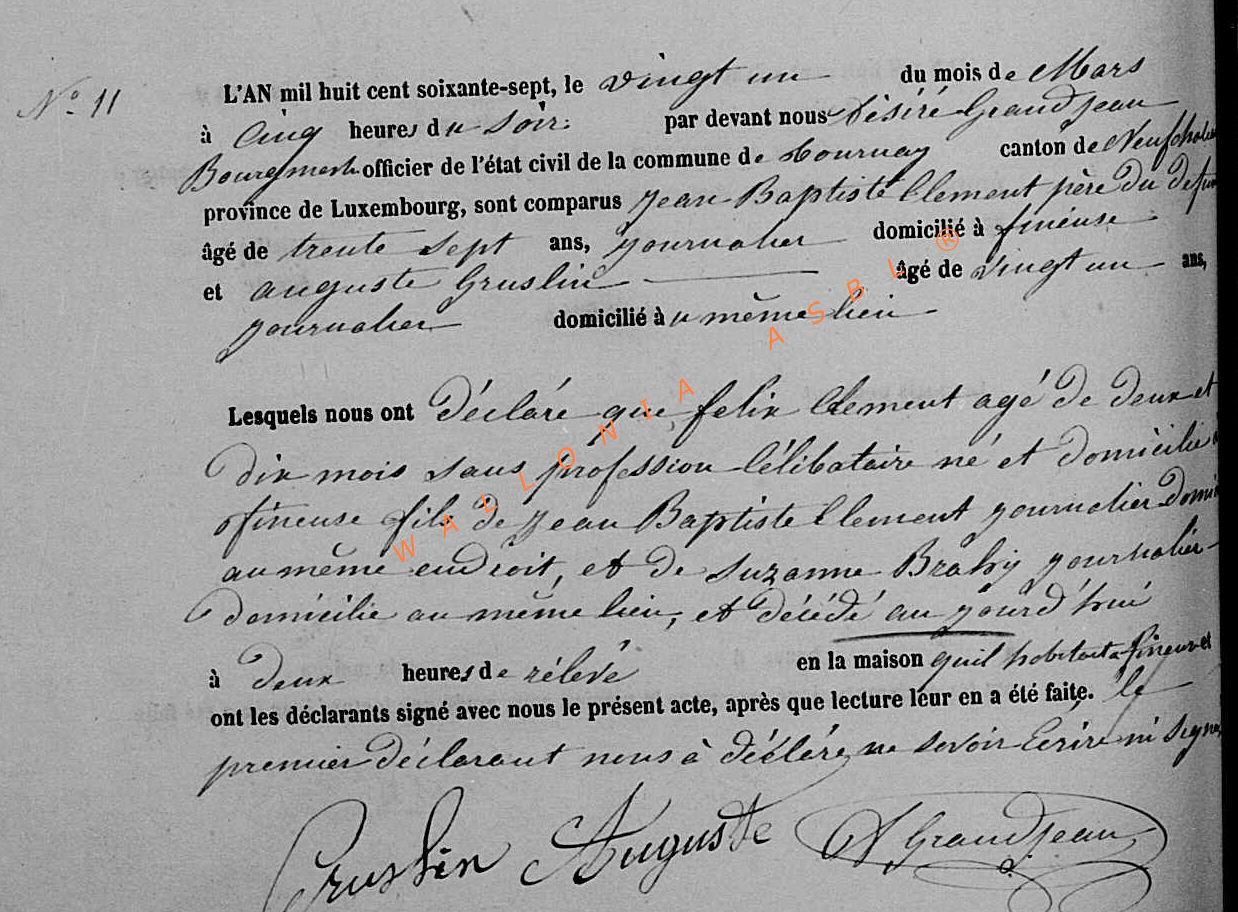 N° 11
L'AN mil huit cent soixante-sept, le vingt un du mois de Mars
à cinq heures du soir. par devant nous Désiré Grandjean
Bourgmestre officier de l'état civil de la commune de Tournay canton de Neufchateau
province de Luxembourg, sont comparus Jean Baptiste Clement père du defun
âgé de trente sept ans, journalier domicilié à fineuse
et auguste Gruslin âgé de vingt un ans,
journalier domicilié au même lieu
Lesquels nous ont déclaré que felix Clement agé de deux et
dix mois sans profession Célibataire né et domicilie à
fineuse fils de Jean Baptiste Clement journalier domi
au même endroit, et de Suzanne journalier
domicilie au même lieu, et décédé au jourd'hui
à deux heures de rélevé en la maison quil habitait a fineux et
ont les déclarants signé avec nous le présent acte, après que lecture leur en a été faite. le
premier déclarant nous à déclaré ne savoir Ecrire ni signer
Gruslin Auguste D Grandjean
WALLONIA ASBL ®